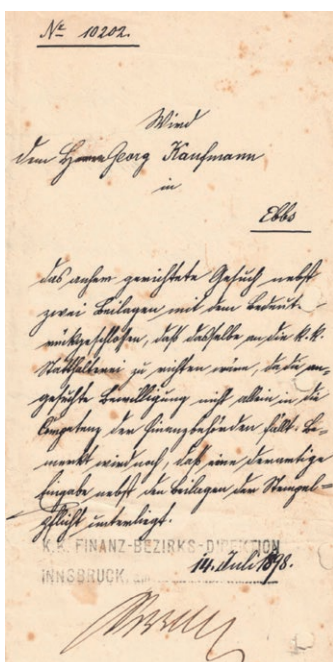 Nº 10202.
Wird
dem Herrn Georg Kaufmann
in
Ebbs
das anher gerichtete Gesuch nebst
zwei Beilagen mit dem Bedeut.
rückgeschlossen, daß dasselbe an die k.k.
Statthalterei zu richten wäre, da die an-
gesuchte Bewilligung nicht allein in die
Competenz der Finanzbehörden fällt. Be-
merkt wird noch, daß eine derartige
Eingabe nebst den Beilagen der Stempel-
pflicht unterliegt.
K.K. FINANZ-BEZIRKS-DIREKTION
INNSBRUCK, 14. Juli 1898.